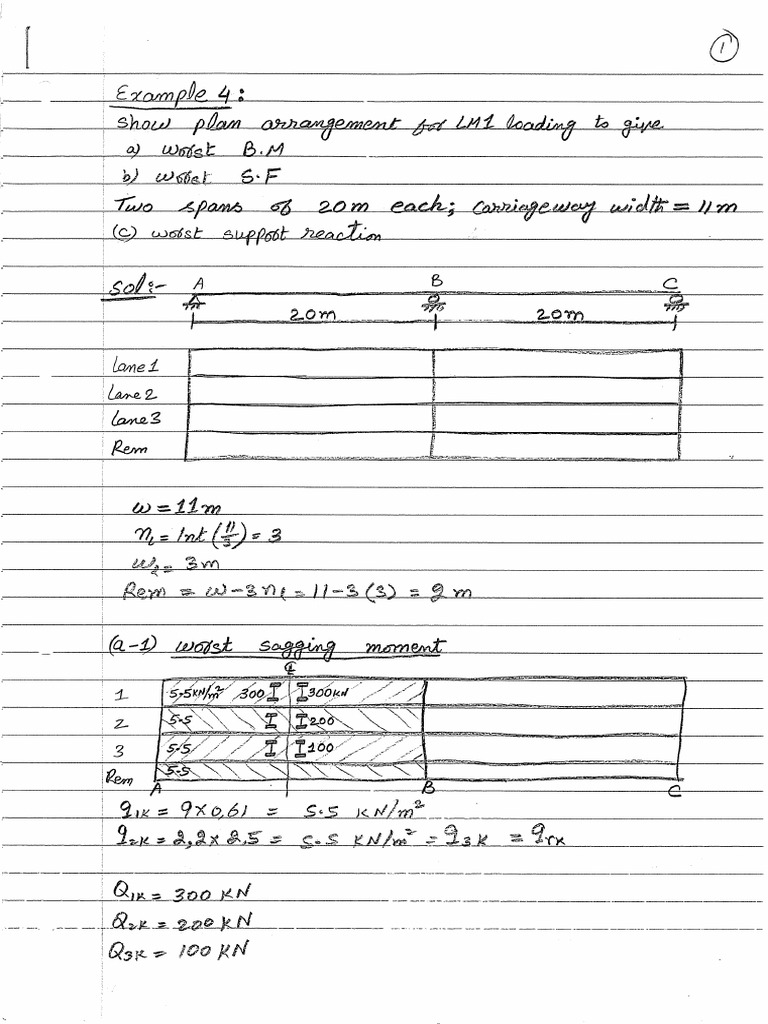 1
Example 4:
Show plan arrangement for LM1 loading to give
a) worst B.M
b) worst S.F
Two spans of 20m each; carriageway width = 11m
(c) worst support reaction
Sol:-
A B C
20m 20m
Lane 1
Lane 2
Lane 3
Rem
w = 11m
nℓ = Int (11/3) = 3
wℓ = 3m
Rem = w-3nℓ = 11-3(3) = 2m
(a-1) worst sagging moment
℄
1 5.5KN/m² 300 300KN
2 5.5 200
3 5.5 100
Rem 5.5
A B C
q1K = 9x0.61 = 5.5 KN/m²
q2K = 2.2x2.5 = 5.5 KN/m² = q3K = qrK
Q1K = 300 KN
Q2K = 200 KN
Q3K = 100 KN